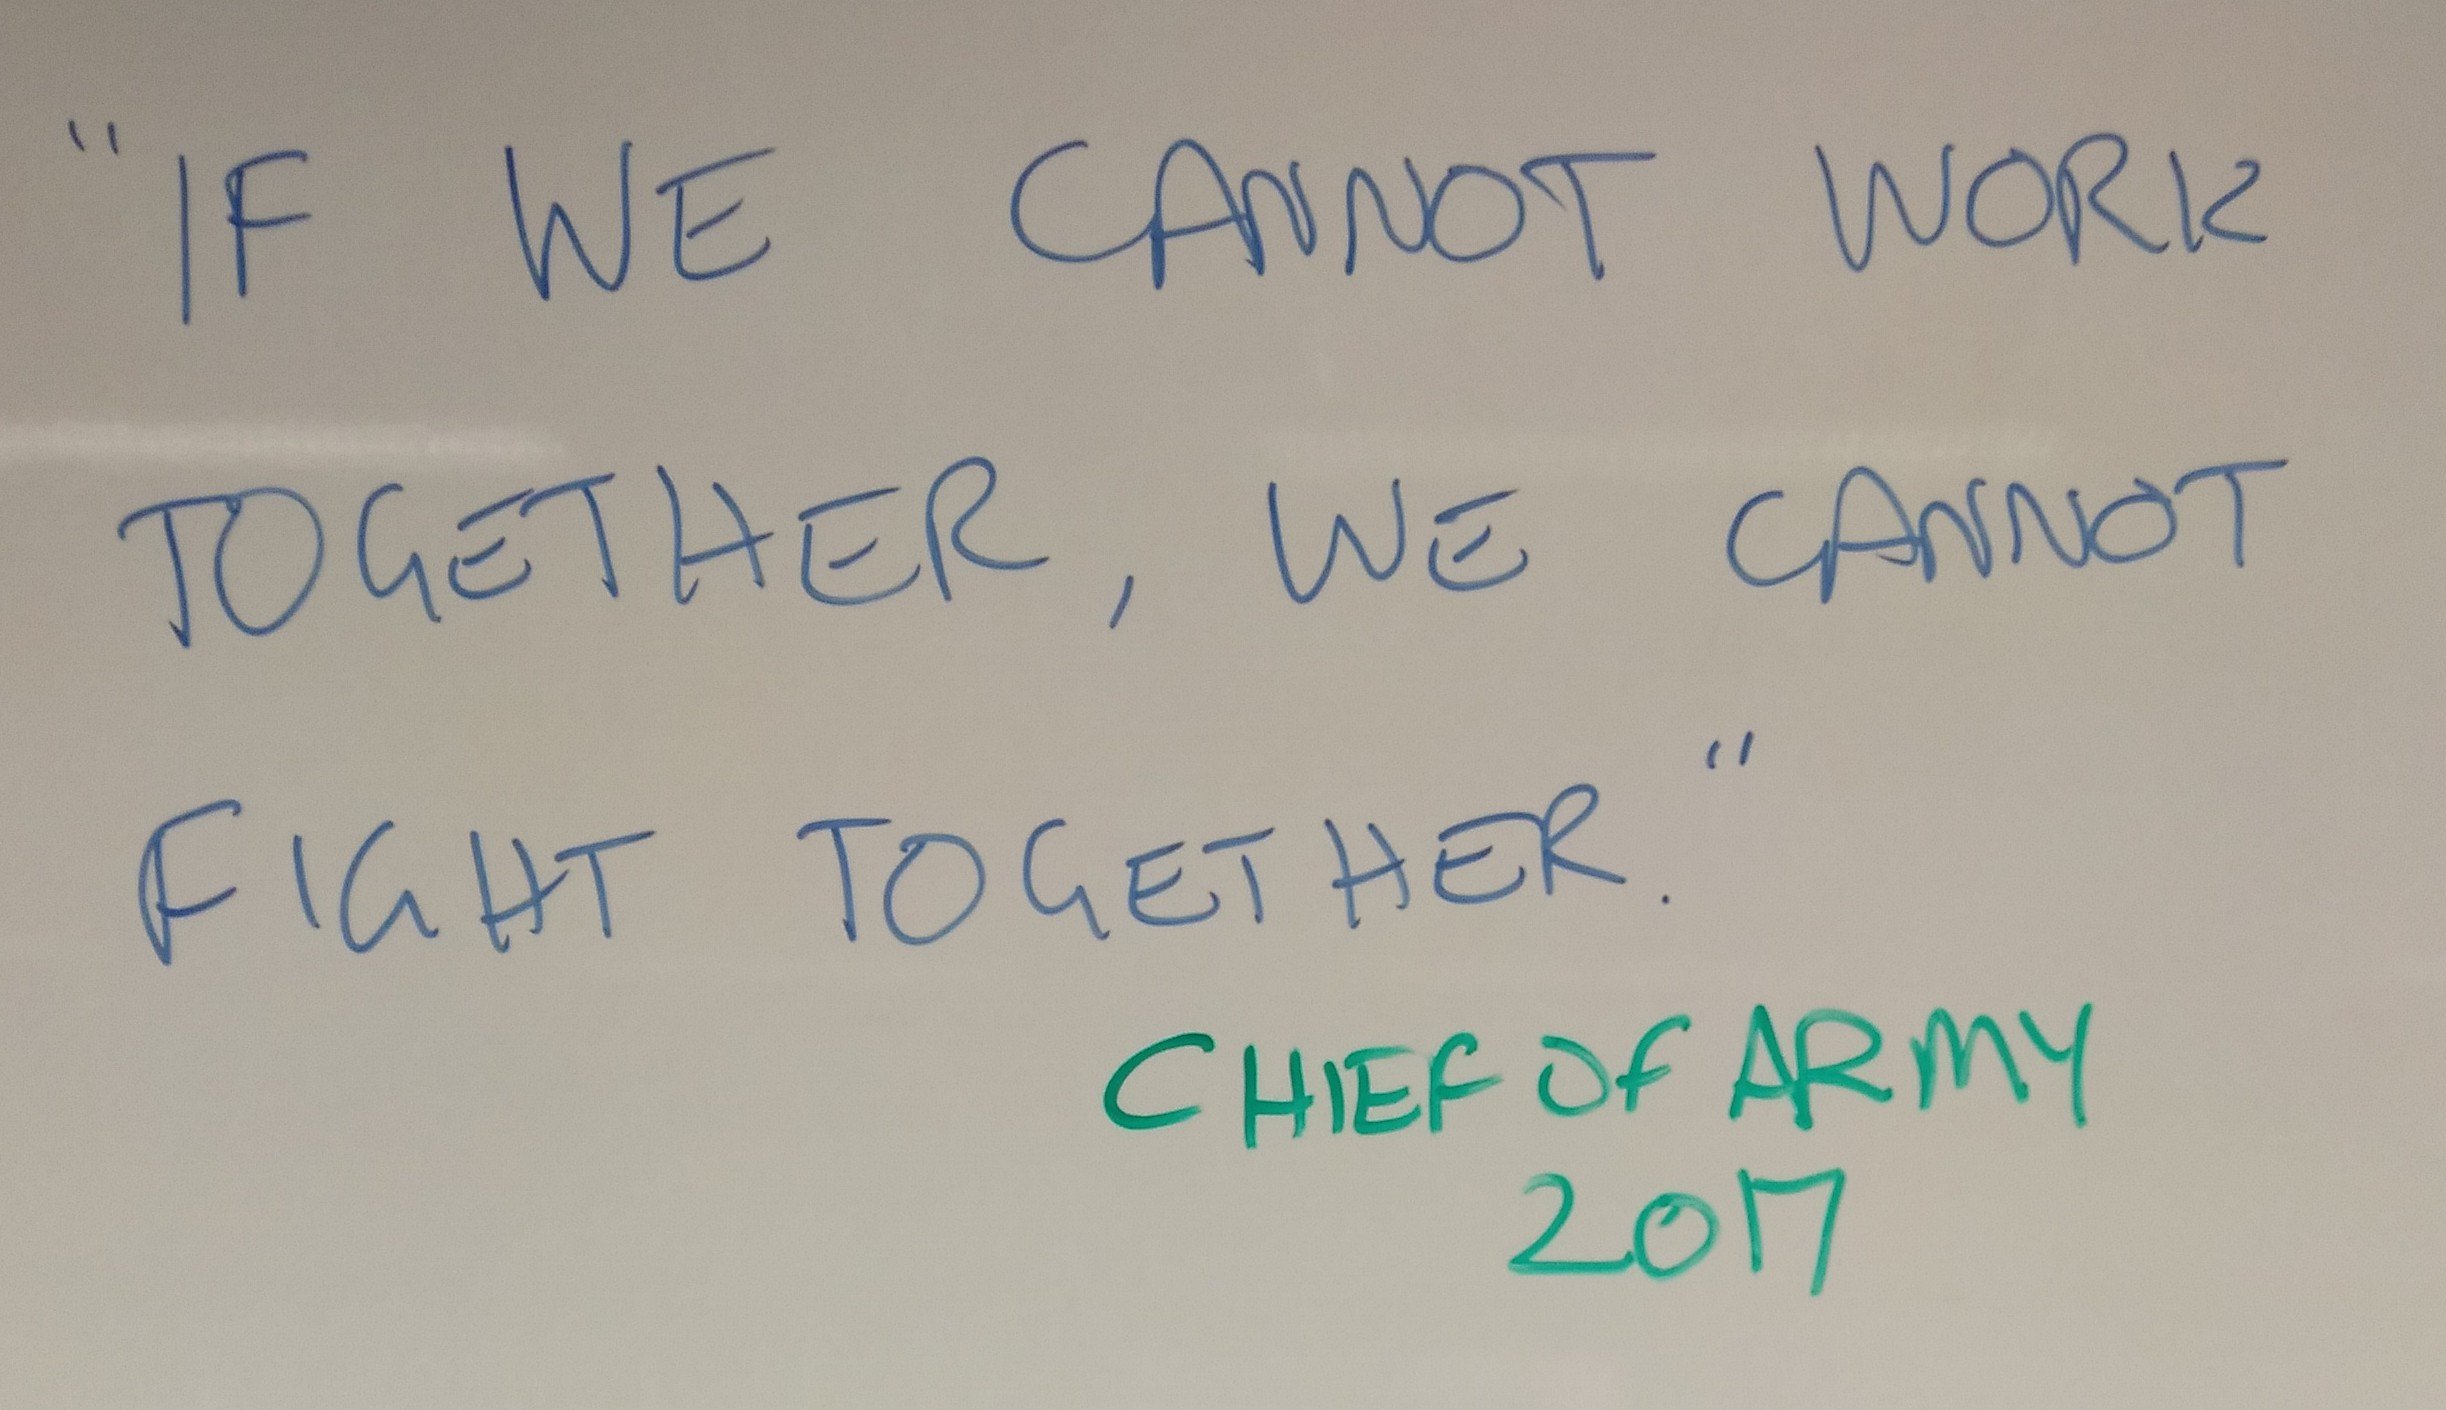 "IF WE CANNOT WORK
TOGETHER, WE CANNOT
FIGHT TOGETHER."
CHIEF OF ARMY
2017